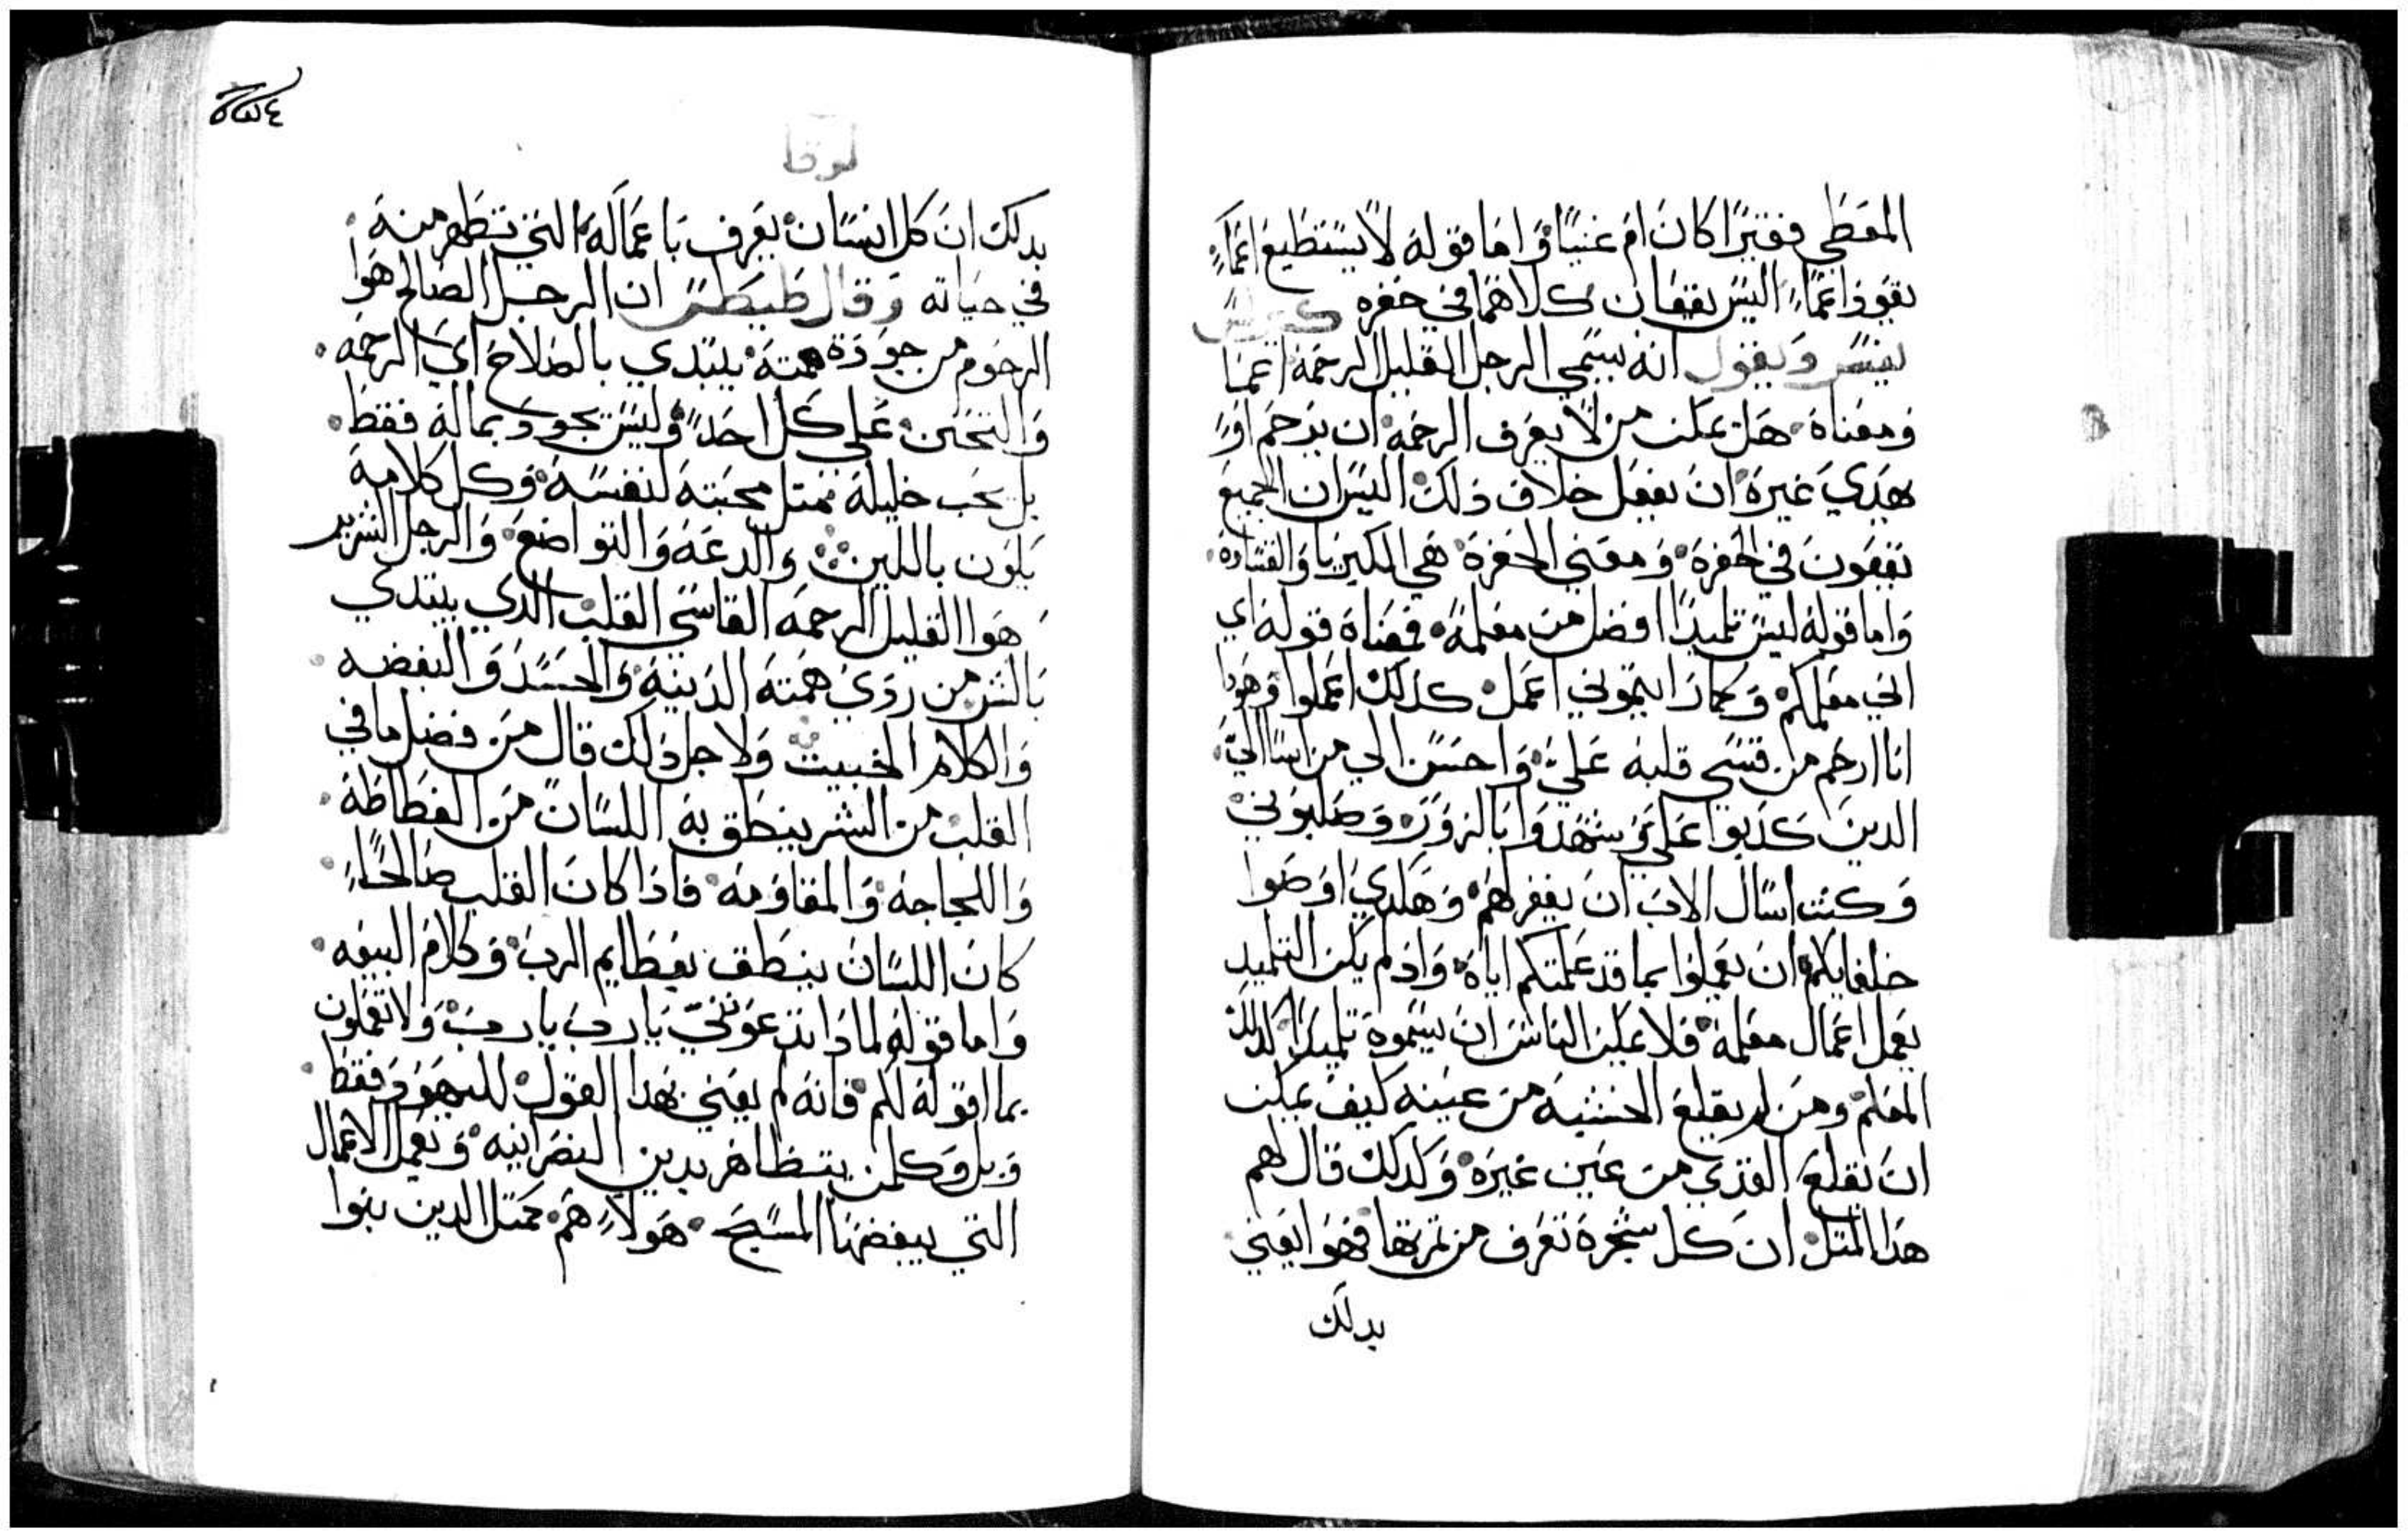 المعطي فقيرًا كان ام غنيًا واما قوله لا يستطيع اعماء
يقود اعماء اليس يقعان كلاهما في حفره
يفسر ويقول انه يسمي الرجل القليل الرحمة اعما
ومعناه هل يمكن من لا يعرف الرحمه ان يرحم او
يهدي غيره ان يفعل خلاف ذلك اليس ان الجميع
يقعون في الحفرة ومعني الحفرة هي الكبريا والقساوه
واما قوله ليس تلميدًا افضل من معلمه فمعناه قوله اي
اني معلمكم وكما رايتموني اعمل كدلك اعملوا وهودا
انا ارحم من قسي قلبه عليّ واحسن الي من اسا اليّ
الدين كدبوا عليّ وشهدوا بالزور وصلبوني
وكنت اسال الاب ان يغفر لهم وهكدي اوصوا
خلفايكم ان يعملوا بما قد علمتكم اياه واذ لم يكن التلميد
يعمل اعمال معلمه فلا يمكن الناس ان يسموه تلميدًا لدلك
المعلم ومن لم يقلع الخشبه من عينه كيف يمكن
ان يقلع القذي من عين غيره وكدلك قال لهم
هدا المتل ان كل شجره تعرف من تمرتها فهوا يعني
بدلك
لوقا
بدلك ان كل انسان يعرف باعماله التي تظهر منه
في حياته وقال طيطس ان الرجل الصالح هوا
الرحوم من جودة همته يبتدي بالصلاح اي الرحمه
والتحنن علي كل احد وليس يجود بماله فقط
بل يحب خليله ممتل محبته لنفسه وكل كلامه
يكون باللين والدعه والتواضع والرجل الشرير
هوا القليل الرحمه القاسي القلب الدي يبتدي
بالشر من ردي همته الدنيه والحسد والبغضه
والكلام الخبيت ولاجل دلك قال من فضل ما في
القلب من الشر ينطق به اللسان من الفظاظة
واللجاجه والمقاومه فاذا كان القلب صالحًا
كان اللسان ينطق بعظايم الرب وكلام البيعه
واما قوله لمادا تدعونني يارب يارب ولا تعملون
بما اقوله لكم فانه لم يعني بهدا القول لليهود فقط
وبل وكلمن يتظاهر بدين النصرانيه ويعمل الاعمال
التي يبغضها المسيح هولاء هم كمتل الدين بنوا